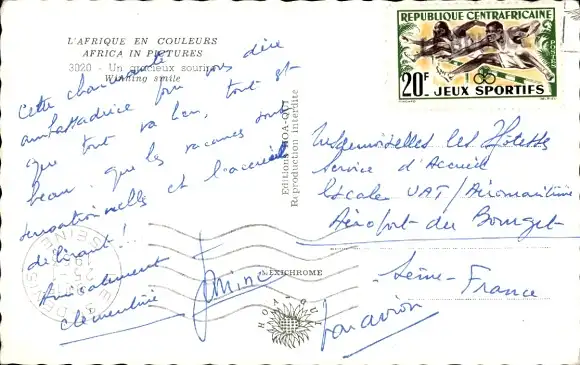 L'AFRIQUE EN COULEURS
AFRICA IN PICTURES
3020 - Un gracieux sourire
Winning smile
Cette charmante
ambassadrice pour vous dire
que tout va bien, tout est
beau, que les vacances sont
sensationnelles et l'accueil
délirant!
Amicalement
Clémentine
Janine
Editions HOA-QUI
Reproduction interdite
MEXICHROME
HOA-QUI
REPUBLIQUE CENTRAFRICAINE
20F
JEUX SPORTIFS
Mesdemoiselles les Hôtesses
Service d'Accueil
Escale UAT/Aéromaritime
Aéroport du Bourget
Seine-France
par avion